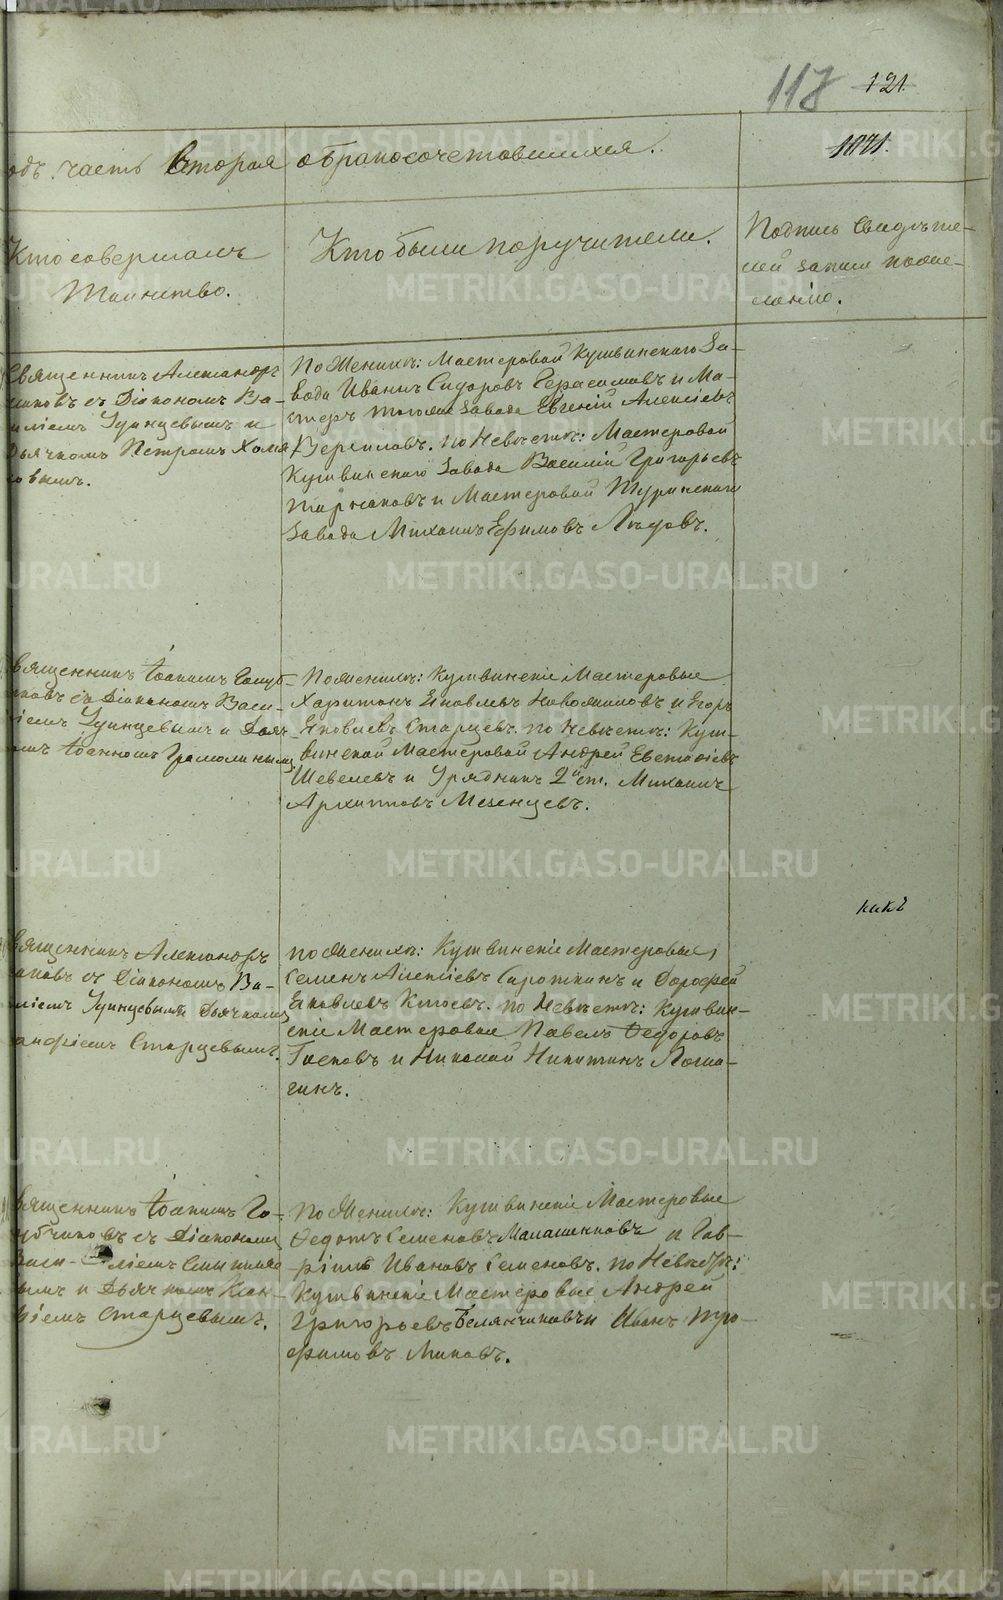 118 121
одъ. часть Вторая о бракосочетовшихся.
1871.
Кто совершалъ
Таинство.
Кто были поручители.
Подпись Свидѣте-
лей записи по же-
ланію.
Священникъ Александръ
съ Діакономъ Ва-
силіемъ Удинцевымъ и
Дьячкомъ Петромъ
По Женихѣ: Мастеровой Кушвинскаго За-
вода Иванъ Сидоровъ Герасимовъ и Ма-
стеръ тогоже Завода Евгеній Алексѣевъ
по Невѣстѣ: Мастеровой
Кушвинскаго Завода Василій Григорьевъ
и Мастеровой Туринскаго
Завода Михаилъ Ефимовъ Лядовъ.
вященникъ Іоакимъ Голуб-
чиковъ съ Діакономъ Васи-
ліемъ Удинцевымъ и Дьяч-
комъ Іоанномъ Грамолинымъ
По Женихѣ: Кушвинскіе Мастеровые
Харитонъ Яковлевъ Новожиловъ и Егоръ
Яковлевъ Старцевъ. по Невѣстѣ: Куш-
винской Мастеровой Андрей Евстафіевъ
Шевелевъ и Урядникъ 2й ст. Михаилъ
Архиповъ Мезенцевъ.
какъ
вященникъ Александръ
съ Діакономъ Ва-
силіемъ Удинцевымъ Дьячкомъ
Старцевымъ.
по Женихѣ: Кушвинскіе Мастеровые,
Семенъ Алексіевъ Сироткинъ и Дорофей
Яковлевъ по Невѣстѣ: Кушвин-
скіе Мастеровые Павелъ Федоровъ
Гисковъ и Николай Никитинъ Лома-
гинъ.
вященникъ Іоакимъ Го-
лубчиковъ съ Діакономъ
Васи- ліемъ
и Дьячкомъ
Старцевымъ.
по Женихѣ: Кушвинскіе Мастеровые
Федотъ Семеновъ Малашенковъ и Гав-
рилъ Ивановъ Семеновъ. по Невѣстѣ:
Кушвинскіе Мастеровые Андрей
Григорьевъ Белянчиковъ и Иванъ Тро-
фимовъ Миковъ.
METRIKI.GASO-URAL.RU